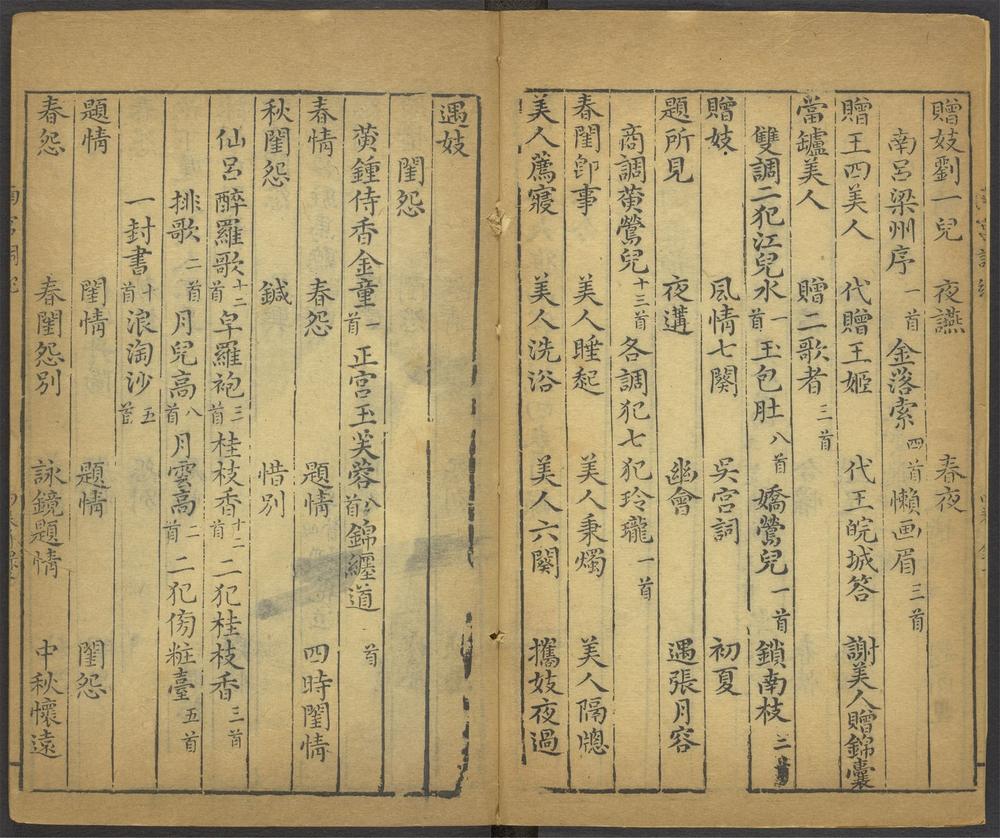 贈妓劉一兒 夜讌 春夜
南呂梁州序一首 金落索四首 懶画眉三首
贈王四美人 代贈王姬 代王皖城答 謝美人贈錦囊
當鑪美人 贈二歌者三首
雙調二犯江兒水一首 玉包肚八首 嬌鶯兒一首 鎖南枝二首
贈妓 風情七闋 吳宮詞 初夏
題所見 夜遘 幽會 遇張月容
商調黃鶯兒十三首 各調犯七犯玲瓏一首
春閨卽事 美人睡起 美人秉燭 美人隔牕
美人薦寢 美人洗浴 美人六闋 攜妓夜過
遇妓
閨怨
黃鍾侍香金童一首 正宮玉芙蓉八首 錦纏道首
春情 春怨 題情 四時閨情
秋閨怨 鍼 惜別
仙呂醉羅歌十二首 皁羅袍三首 桂枝香十二首 二犯桂枝香三首
排歌二首 月兒高八首 月雲高二首 二犯傍粧臺五首
一封書十首 浪淘沙五首
題情 閨情 題情 閨怨
春怨 春閨怨別 詠鏡題情 中秋懷遠